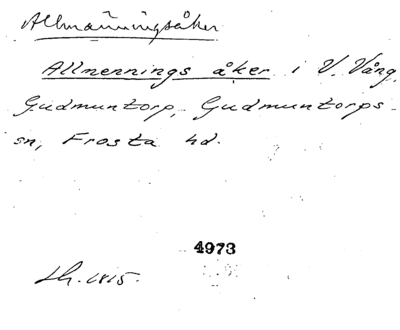 Allmänningsåker
Allmennings åker i V. Vång,
Gudmuntorp, Gudmuntorps
sn, Frosta hd.
4973
Lh. 1815.